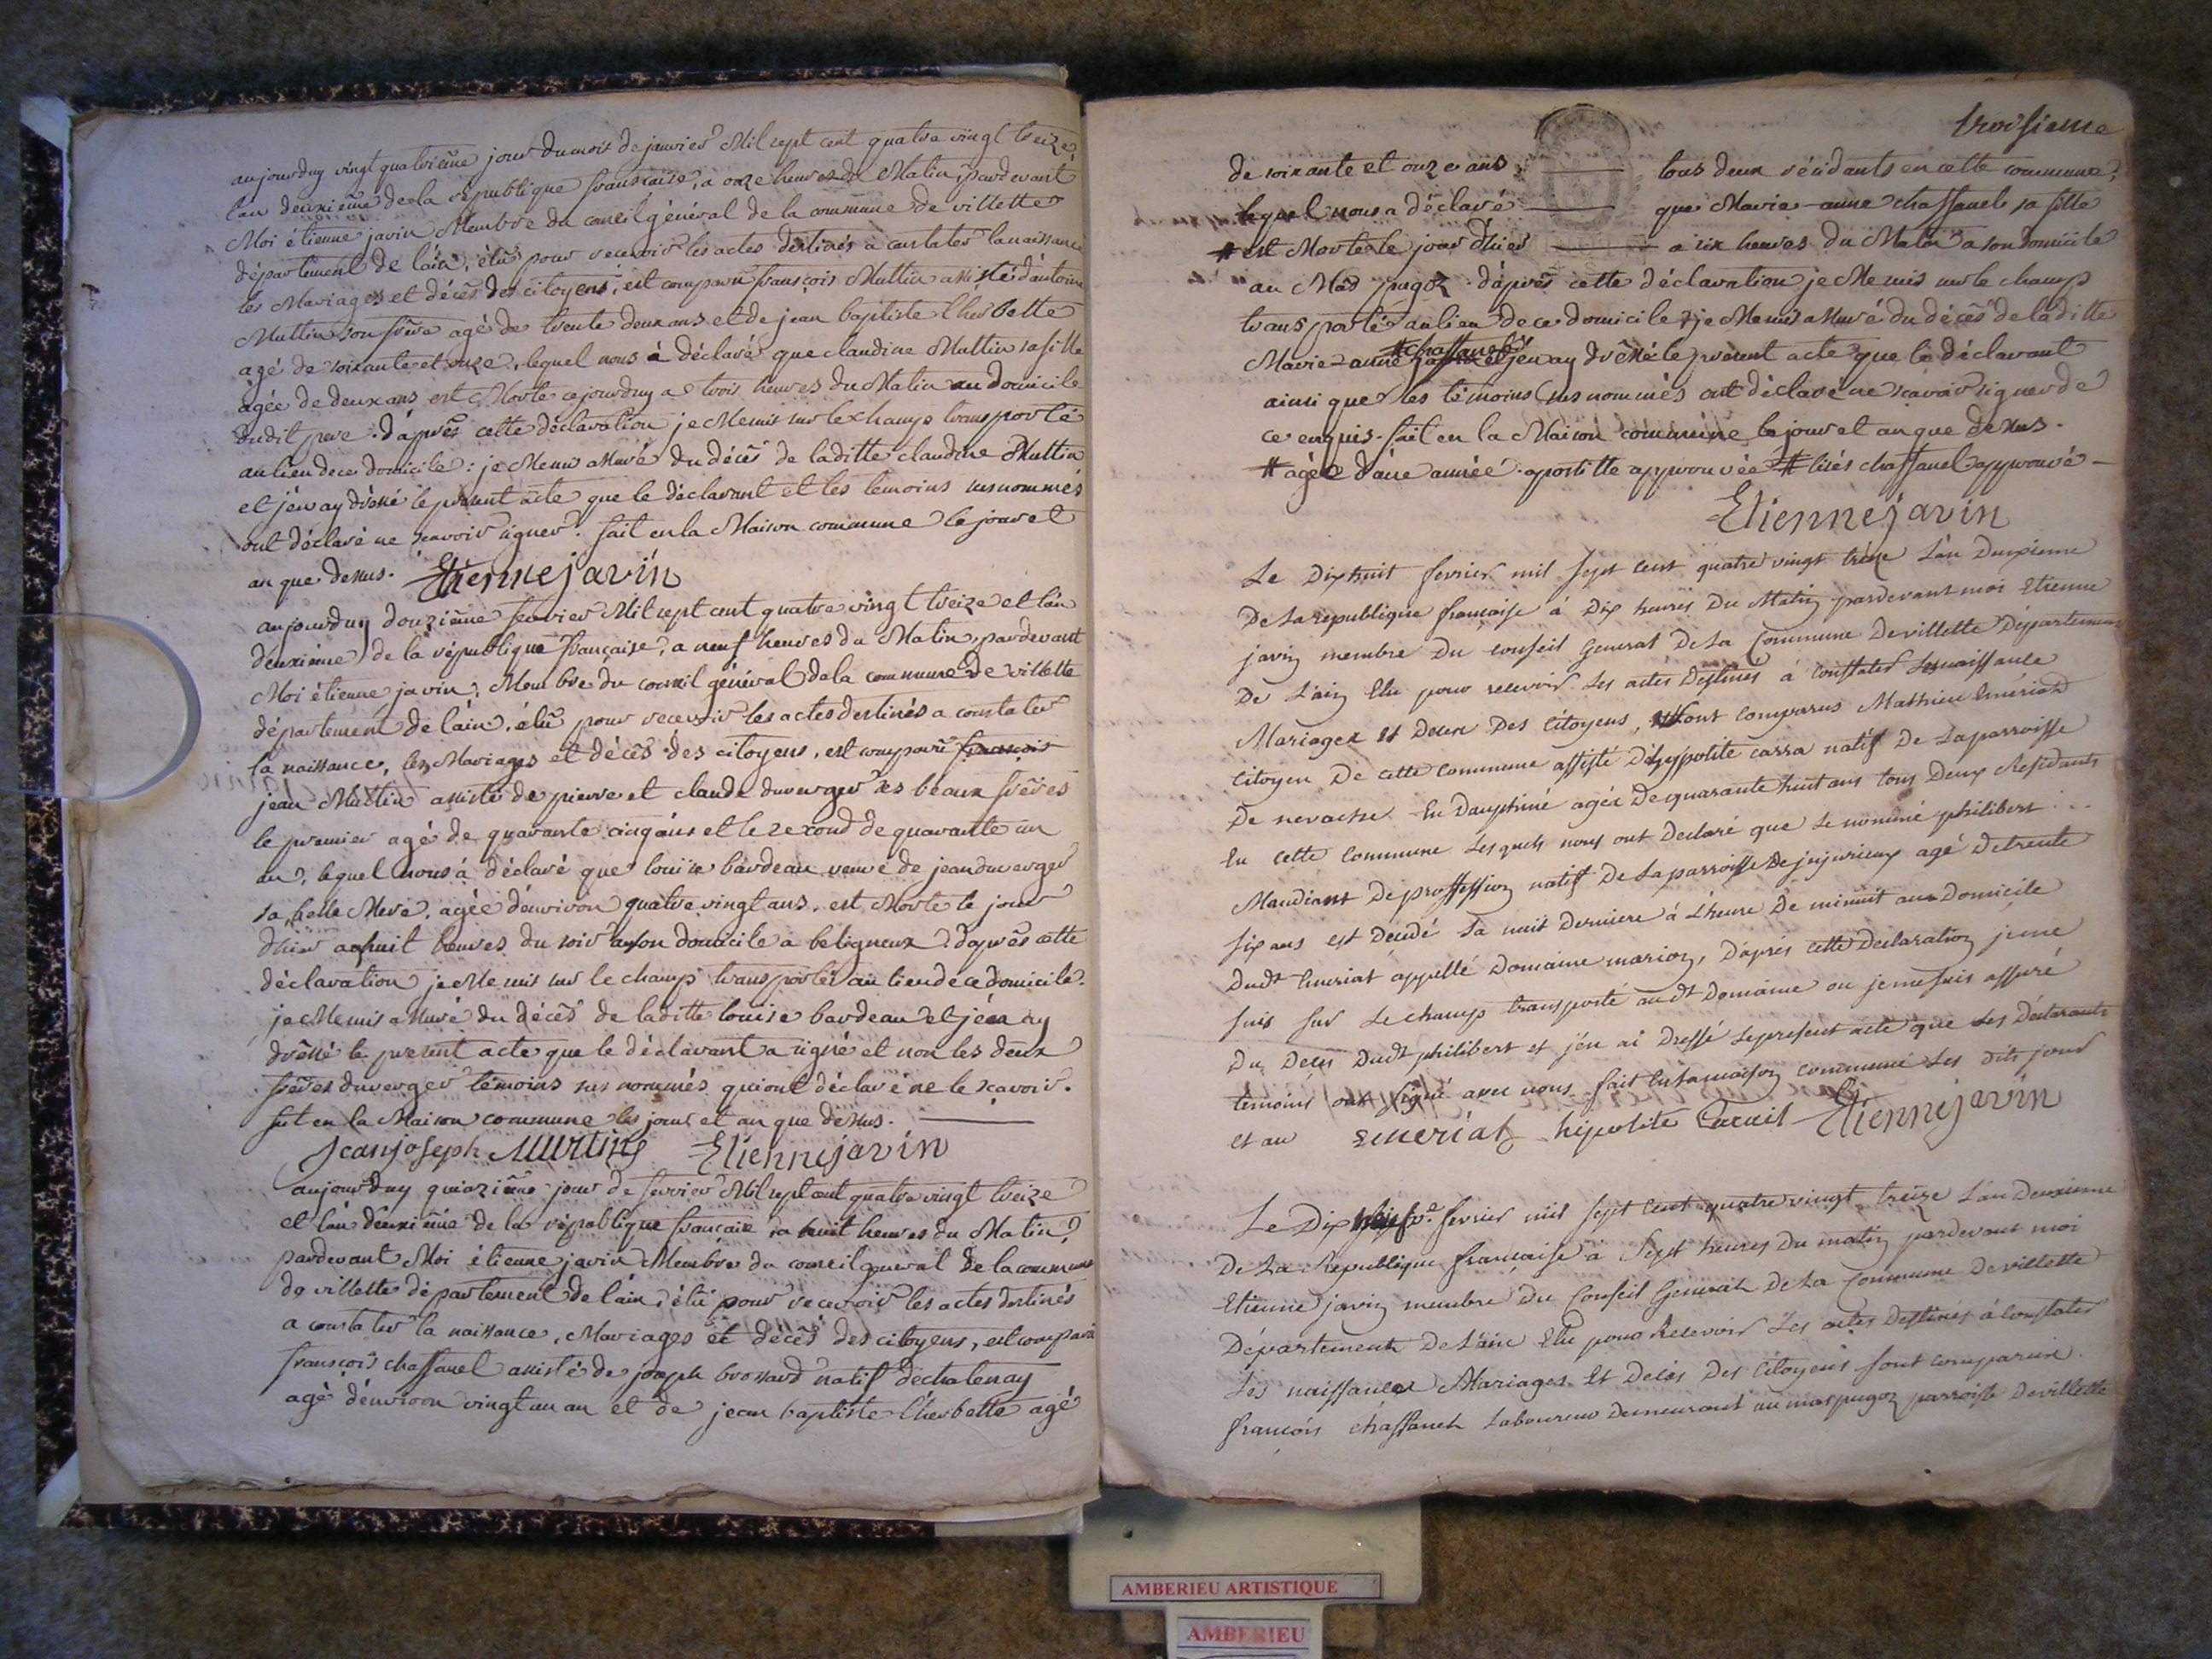 aujourduy vingt quatrieme jour du mois de janvier Mil sept cent quatre vingt treize
l'an deuxieme de la republique française, a onze heures du Matin, pardevant
Moi étienne javin Membre du conseil général de la commune de villette
département de l'ain, élu pour recevoir les actes destinés a constater la naissance
les Mariages et décès des citoyens, est comparu françois Muttin assisté d'antoine
Muttin son frère agé de trente deux ans et de jean baptiste l'herbette
agé de soixante et onze, lequel nous à déclaré que claudine Muttin sa fille
agée de deux ans est Morte cejourduy a trois heures du Matin au domicile
dudit pere. d'après cette déclaration je Me suis sur le champ transporté
au lieu de ce domicile : je Me suis assuré du décès de laditte claudine Muttin
et j'en ay dressé le present acte que le déclarant et les temoins susnommés
ont déclaré ne scavoir signer. fait en la Maison commune le jour et
an que dessus. Etienne javin
aujourduy douzième fevrier Mil sept cent quatre vingt treize et l'an
deuxième de la république française, a neuf heures du Matin, pardevant
Moi étienne javin, Membre du conseil général de la commune de villette
département de l'ain, élu pour recevoir les actes destinés a constater
la naissance, les Mariages et décès des citoyens, est comparu françois
jean Muttin assisté de pierre et claude duverger ses beaux frères
le premier agé de quarante cinq ans et le second de quarante un
an, lequel nous à déclaré que louise bardeau veuve de jean duverger
sa belle Mere, agée d'environ quatre vingt ans, est Morte le jour
d'hier a huit heures du soir a son domicile a beligneux. d'après cette
déclaration je Me suis sur le champ transporté au lieu de ce domicile.
je Me suis assuré du décès de laditte louise bardeau et j'en ay
dréssé le present acte que le déclarant a signé et non les deux
frères duverger témoins sus nommés qui ont déclaré ne le scavoir.
fait en la Maison commune les jour et an que dessus.
Jean joseph Murtin Etienne javin
aujourduy quinzième jour de fevrier Mil sept cent quatre vingt treize
et l'an deuxième de la république française a huit heures du Matin,
pardevant Moi étienne javin Membre du conseil général de la commune
de villette département de l'ain, élu pour recevoir les actes destinés
a constater la naissance, Mariages et décès des citoyens, est comparu
françois chaffanel assisté de joseph brossard natif de chatenay
agé d'environ vingt un an et de jean baptiste l'herbette agé
troisieme
de soixante et onze ans, tous deux résidants en cette commune,
lequel nous a déclaré que Marie-anne chaffanel sa fille
# est Morte le jour d'hier a six heures du Matin a son domicile
au Mas pugoz. d'après cette déclaration je Me suis sur le champ
transporté au lieu de ce domicile, je Me suis assuré du décès de laditte
Marie-anne # chaffanel et j'en ay dréssé le present acte que le déclarant
ainsi que les témoins susnommés ont déclaré ne scavoir signer de
ce enquis. fait en la Maison commune le jour et an que dessus.
# agée d'une année. apostille approuvée # lisés chaffanel approuvé
Etienne javin
Le Dix huit fevrier mil sept cent quatre vingt treize L'an Deuxieme
De La republique française à Dix heures Du Matin pardevant moi Etienne
javin membre Du conseil General De La Commune De villette Département
De L'ain Elu pour recevoir Les actes Destinés à constater Les naissance
Mariages et Deces Des Citoyens, sont comparus Mathieu Emeriat
Citoyen De cette Commune assisté D'hyppolite carra natif De La parroisse
De nevache En Dauphiné agés De quarante huit ans tous Deux Residants
En cette Commune Lesquels nous ont Declaré que Le nommé philibert
Mandiant De proffession natif De La parroisse De jujurieux agé De trente
six ans est Decedé La nuit Derniere à L'heure De minuit au Domicile
Dudt Emeriat appellé Domaine marion, D'après cette Declaration je me
suis sur Le champ transporté audt Domaine ou je me suis assuré
Du Deces Dudt philibert et j'en ai Dressé Le present acte que Les Déclarants
temoins ont signé avec nous. fait En La maison commune Les dits jour
et an Emeriat hipolite Etienne javin
Le Dix fevrier mil sept Cent quatre vingt treize L'an Deuxieme
De La Republique française à sept heures Du matin pardevant moi
Etienne javin membre Du Conseil General De La Commune De villette
Département De L'ain Elu pour Recevoir Les actes Destinés à Constater
Les naissances Mariages Et Deces Des Citoyens sont comparus
françois chaffanel Laboureur Demeurant au mas pugoz parroisse De villette
AMBERIEU ARTISTIQUE
AMBERIEU